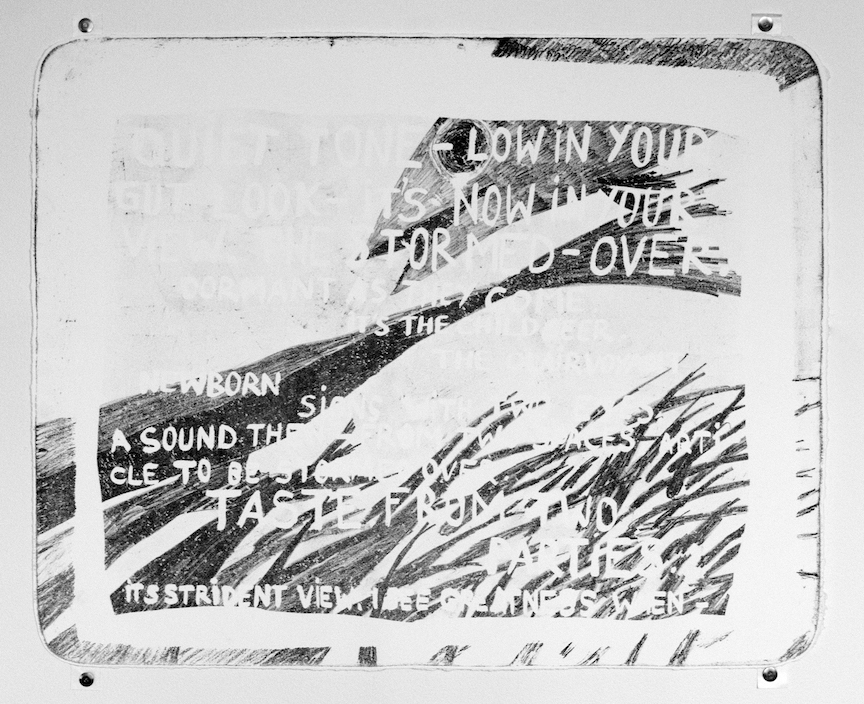 QUIET TONE - LOW IN YOUR
GUT LOOK - IT'S NOW IN YOUR
VIEW, THE STORMED-OVER.
DORMANT AS THEY COME
IT'S THE CHILD
THE
NEWBORN
SIGNS WITH TWO
A SOUND THEN FROM TWO SPACES-ARTI
CLE TO BE STORMED OVER
TASTE FROM TWO
PARTIES -
ITS STRIDENT VIEW. I SEE GREATNESS WHEN -